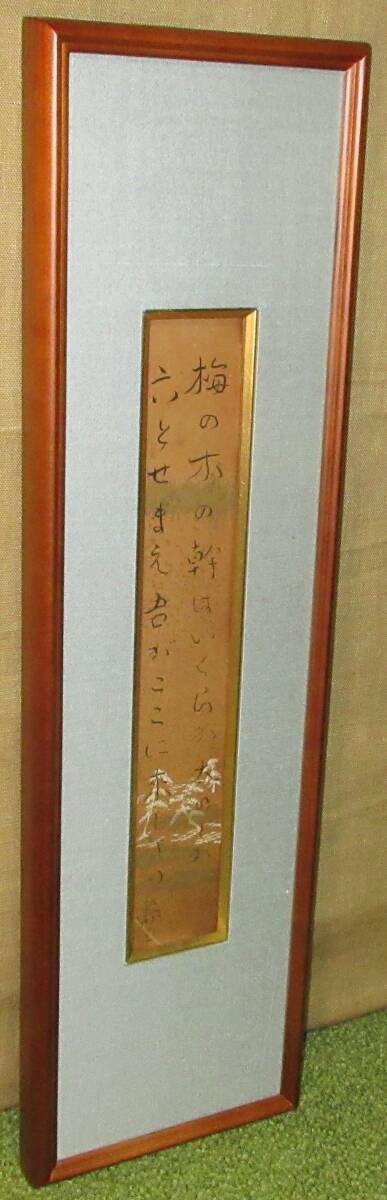 梅の木の幹はいくらか太りしか
六とせまえ君がここに来し